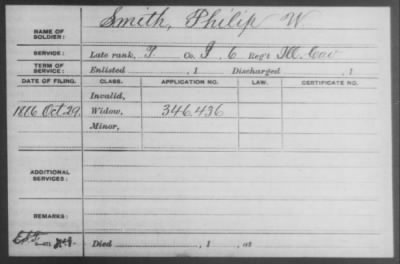 NAME OF SOLDIER: Smith, Philip W
SERVICE: Late rank, P. Co. I, 6 Reg't Ill. Cav
TERM OF SERVICE: Enlisted , 1 Discharged , 1
DATE OF FILING. CLASS. APPLICATION NO. LAW. CERTIFICATE NO.
Invalid,
1886 Oct. 29. Widow, 346.436
Minor,
ADDITIONAL SERVICES:
REMARKS:
Died , 1 , at